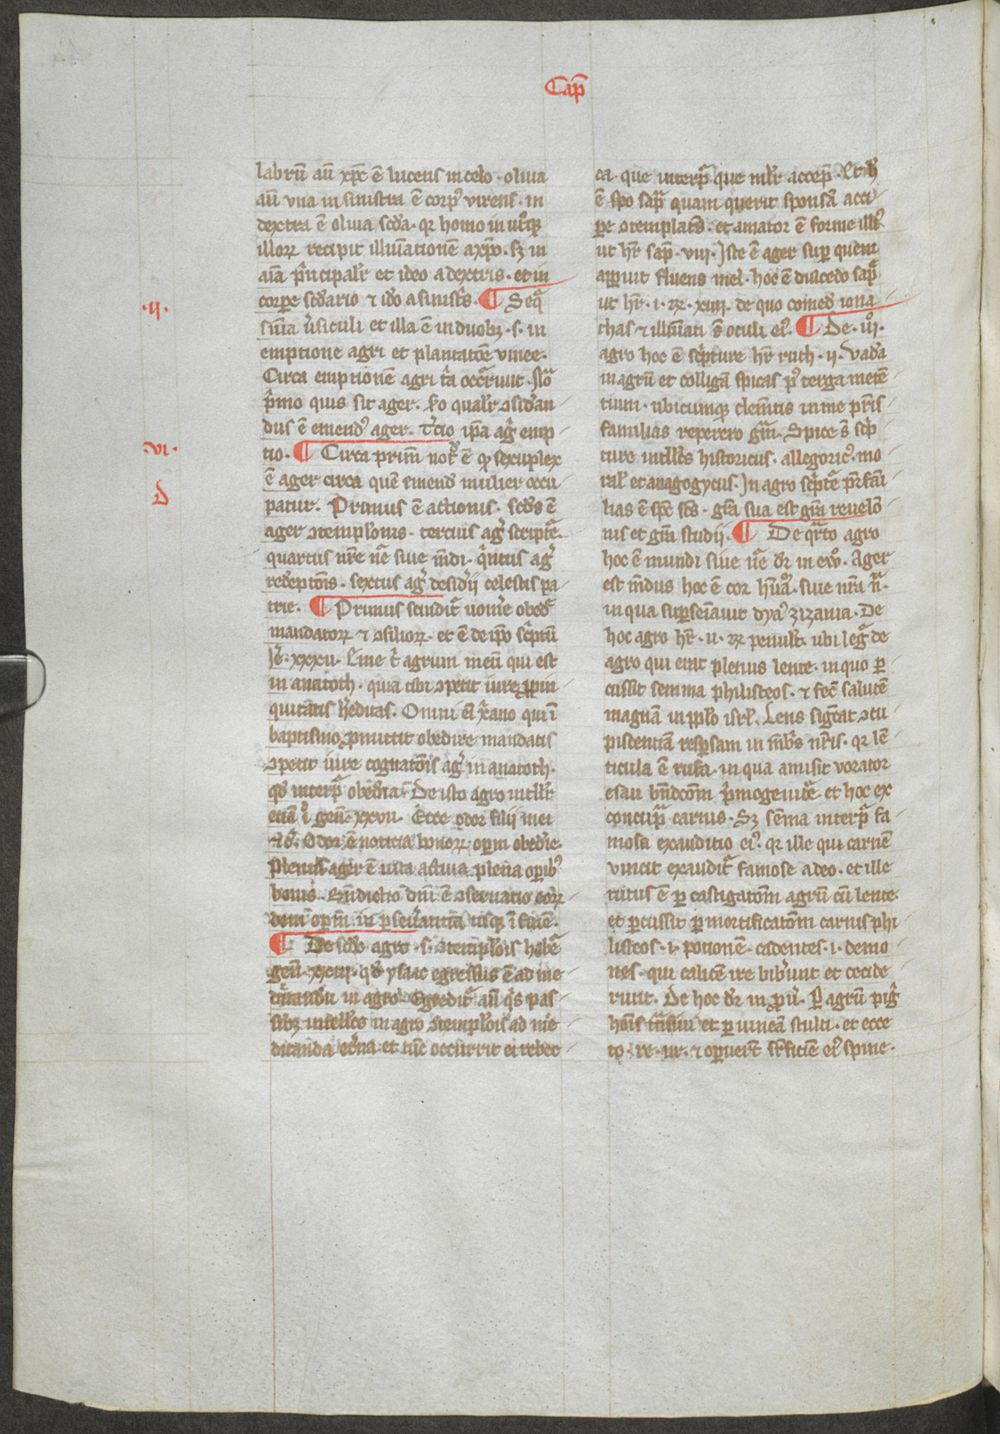 Cap̄
labrū aūt xp̄c ē lucens in celo · oliua
aūt vna in sinistra ē corpꝰ virens · in
dextera ē oliua scd̄a · qꝛ homo in utͦqꝫ
illoꝝ recipit illuīationem a xp̄o · sꝫ in
aīa pͥncipalr̄ et ideo a dextris · et in
corpore scd̄ario ⁊ iḋo a sinistͥs · ¶ Seqͥ
·ij·
sīna ūsiculi et illa ē in duobꝫ · s · in
emptione agri et plantatōe vinee ·
Circa emptionē agri tͥa occᷓrūt ·
pͥmo quis sit ager · qualr̄ ꝯsidān
dus ē emendꝰ ager · tͨcio ipā agͥ emp
·vi·
tio · ¶ Circa primū noͣ ē ꝙ sextuplex
ē ager circa quē emend̄ mulier occu
D
patur · Primus ē actionis · scd̄s ē
ager ꝯtemplōnis · tercius agͥ scriptͤ
quartus nr̄e nͤe siue mūdi · qͥntus agͥ
redēptōis · sextus agͥ desid̄ii celestis pa
trie · ¶ Primus scindit̄ uom̄e obed̄
mandatoꝝ ⁊ ꝯsilioꝝ · et ē de ip̄o scͥptū
Jeͤ · xxxij · Eme tͥ agrum meū qui est
in anatoth · qua tibi ꝯpetit iure ꝓpin
quitatis h̄editas · Omni eī xͥano qui ī
baptismo ꝓmittit obedire mandatis
ꝯpetit iure cognatōis agͥ in anatoth ·
qd̄ interpͥ obed̄ia · De isto agro intellͥ
etiā ī geū · xxvij · Ecce odor filij mei
⁊c̄ · Odor ē noticia bonoꝝ opm̄ obed̄ie
Plenus ager ē uita actiua plena opibꝰ
bonis · Bn̄dictio dn̄i ē ꝯseruatio eoꝝ
dem opm̄ in pseuͣantia usqꝫ ī finē ·
¶ De scd̄o agro · s · ꝯtemplōis habet̄
geū · xxiiij · qd̄ ysaac egressus ē ad me
ditandū in agro · Egredit̄ aūt qͥs pas
sibꝫ intellcͨs in agro ꝯtemplōis ad me
ditanda et̄na et tūc occurrit ei rebec
ca · que interpͣ que mlt̄ accep̄ · Et hͥ
ē spo sapͥe quam querit sponsā acci
pe ꝯtemplatͥs · et amator ē forme illiꝰ
ut hr̄ sap̄ · viij · Iste ē ager sup quem
apparuit fluens mel · hoc ē dulcedo sapͥe
ut hr̄ · i · rͤ · xiiij · de quo comed̄ iona
thas ⁊ illūiati s̄t oculi eiꝰ · ¶ De · iijͦ ·
agro hoc ē scͥpture hr̄ ruth · ij · Vadā
in agrū et colligā spicas pͦ terga metē
tium · ubicumqꝫ clemētis in me pr̄is
familias reperero grām · Spice s̄t scͥp
ture intellcͨs historicus · allegoricꝰ · mo
ral̄ et anagogycus · In agro scͥptͤ pr̄ · fāi
lias ē spc̄ sc̄s · grā sua est grā reuelōi
nis et grā studij · ¶ De qͣrto agro
hoc ē mundi siue nͤe dr̄ in ewͦ · Ager
est mūdus hoc ē cor hūaͦ siue nrā nͣ ·
in qua supseīauit dyaꝰ zizania · De
hoc agro hr̄ · ij · rͤ penult̄ · ubi legͥ de
agro qui erat plenus lente · in quo p
cussit semma philisteos · ⁊ fec̄ salutē
magnā in pl̄o isrl̄ · Lens sigͣcat ꝯcu
piscentiam respsam in mēbͥs nrīs · qꝛ lē
ticula ē rufa · in qua amisit vorator
esau bn̄dcōm pͥmogeniture et hoc ex
concupͥa carnis · Sꝫ sēma interpͣ fa
mosa exauditio eiꝰ · qꝛ ille qui carnē
vincit exaudit̄ famose a deo · et ille
tutus ē p castigatōm agrū cū lente ·
et pcussit p mortificatōm carnis phi
listeos · i · potionē · cadentes · i · demo
nes · qui calicē ire bibūnt et cecide
runt · De hoc dr̄ in ꝓuͥ · Per agrū pigͥ
hōis trāsiui et p uineam stulti · et ecce
to · re · ur · ⁊ opuerāt s̄rficiē eiꝰ spine ·